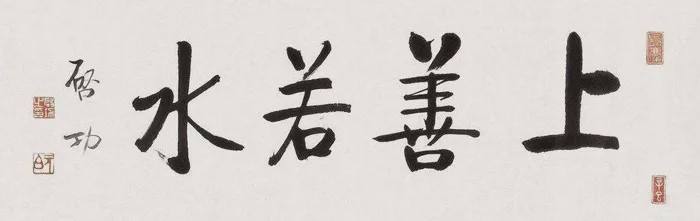 上善若水
启功